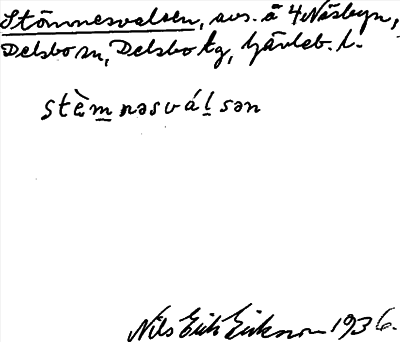 Stömnesvalsen, avs. å 4 Näsbyn,
Delsbo sn, Delsbo tg, Gävleb. l.
stèmnəsválsən
Nils Erik Eriksson 1936.